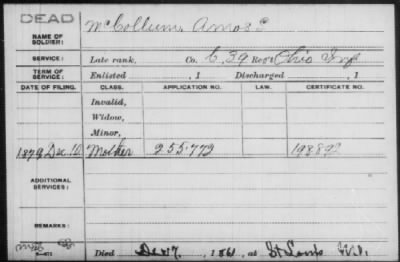 DEAD
NAME OF SOLDIER: McCollum, Amos
SERVICE: Late rank, Co. C, 39 Reg't Ohio Inf
TERM OF SERVICE: Enlisted , 1 Discharged , 1
DATE OF FILING. CLASS. APPLICATION NO. LAW. CERTIFICATE NO.
Invalid,
Widow,
Minor,
1879 Dec. 10 Mother 255.772
ADDITIONAL SERVICES:
REMARKS:
Died Dec 17, 1861, at St Louis